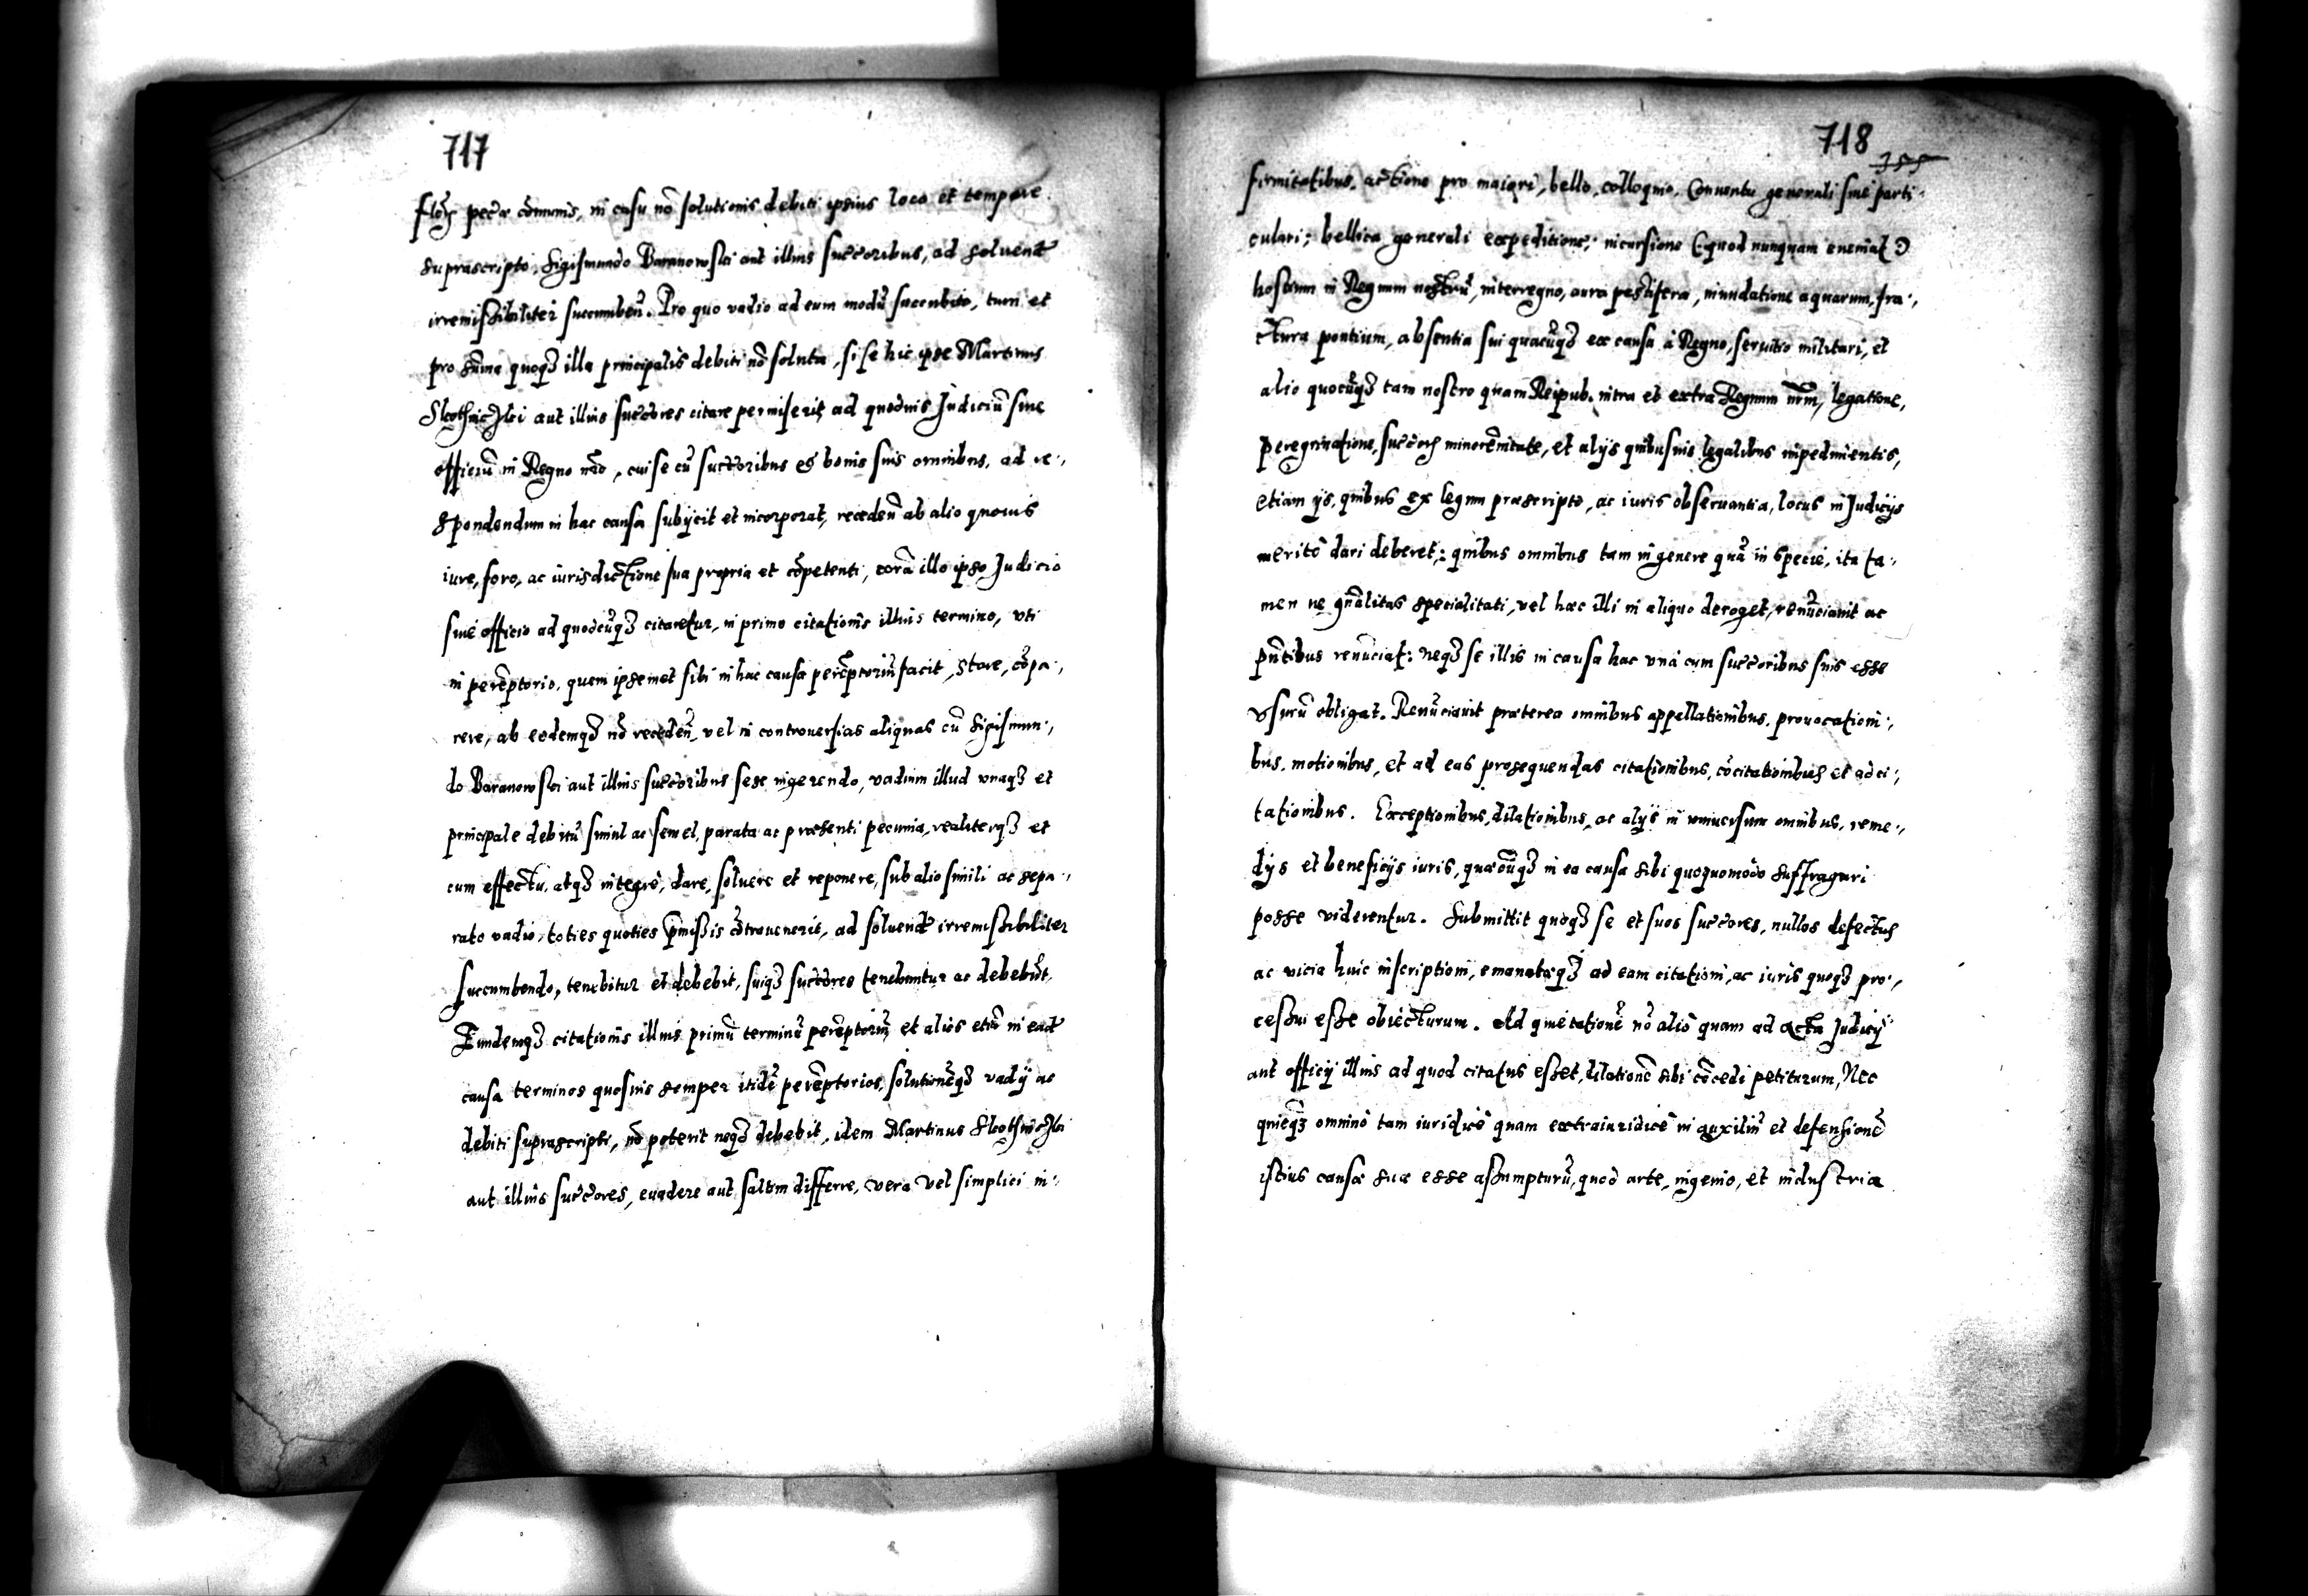 717
floꝝ pecæ cõmunis, in casu nõ solutionis debiti ipsius loco et tempore
suprascripto, Sigismundo Baranowski aut illius succõribus, ad soluend
irremissibiliter succumbeñ. Pro quo vadio ad eum modũ succubito, tum et
pro sũma quoqꝫ illa principalis debiti nõ soluta, si se hic ipse Martinus
aut illius succõres citare permiserit, ad quoduis Judiciũ siue
officiũ in Regno nrõ, cui se cũ succõribus et bonis suis omnibus, ad re-,
spondendum in hac causa subijcit et incorporat, recedeñ ab alio quouis
iure, foro, ac iurisdictione sua propria et cõpetenti, corã illo ipso Judicio
siue officio ad quodcũqꝫ citaretur, in primo citationis illius termino, vti
in perẽptorio, quem ipsemet sibi in hac causa perẽptoriũ facit, stare, cõpa-,
rere, ab eodemqꝫ nõ recedeñ, vel in controuersias aliquas cũ Sigismun-,
do Baranowski aut illius succõribus sese ingerendo, vadium illud vnaqꝫ et
principale debitũ simul ac semel, parata ac præsenti pecunia, realiterqꝫ et
cum effectu, atqꝫ integrè, dare, soluere et reponere, sub alio simili ac sepa-,
rato vadio, toties quoties p̃missis cõtrauenerit, ad soluend irremissibiliter
succumbendo, tenebitur et debebit, suiqꝫ succõres tenebuntur ac debebũt.
Eundemqꝫ citationis illius primũ terminũ perẽptoriũ, et alios etiã in ead
causa terminos quosuis semper itidẽ perẽptorios, solutionẽqꝫ vadij ac
debiti suprascripti, nõ poterit neqꝫ debebit, idem Martinus
aut illius succõres, euadere aut saltem differre, vera vel simplici in-,
718
355
firmitatibus, actione pro maiori, bello, colloquio, Conuentu generali siue parti-
culari; bellica generali expeditione, incursione (:quod nunquam eueniat:)
hostium in Regnum nostrũ, interregno, aura pestifera, inundatione aquarum, fra-,
ctura pontium, absentia sui quacũqꝫ ex causa à Regno, seruitio militari, et
alio quocũqꝫ tam nostro quam Reipub. intra et extra Regnum nrm, legatione,
peregrinatione, succoꝝ minorẽnitate, et alijs quibusuis legalibus impedimentis,
etiam ijs, quibus ex legum præscripto, ac iuris obseruantia, locus in Judicijs
meritò dari deberet: quibus omnibus tam in genere quã in specie, ita ta-,
men ne gñalitas specialitati, vel hæc illi in aliquo deroget, renũciauit ac
pñtibus renũciat: neqꝫ se illis in causa hac vnà cum succõribus suis esse
vsurũ obligat. Renũciauit præterea omnibus appellationibus, prouocationi-,
bus, motionibus, et ad eas prosequendas citationibus, cõcitationibus et adci-,
tationibus. Exceptionibus, dilationibus, ac alijs in vniuersum omnibus, reme-,
dijs et beneficijs iuris, quæcũqꝫ in ea causa sibi quoquomodo suffragari
posse viderentur. Submittit quoqꝫ se et suos succõres, nullos defectus
ac vicia huic inscriptioni, emanatæqꝫ ad eam citationi, ac iuris quoqꝫ pro-,
cessui esse obiecturum. Ad quietationẽ nõ aliò quam ad acta Judicij
aut officij illius ad quod citatus esset, dilationẽ sibi cõcedi petiturum, Nec
quicqꝫ omninò tam iuridicè quam extraiuridicè in auxiliũ et defensionẽ
istius causæ suæ esse assumpturũ, quod arte, ingenio, et industria